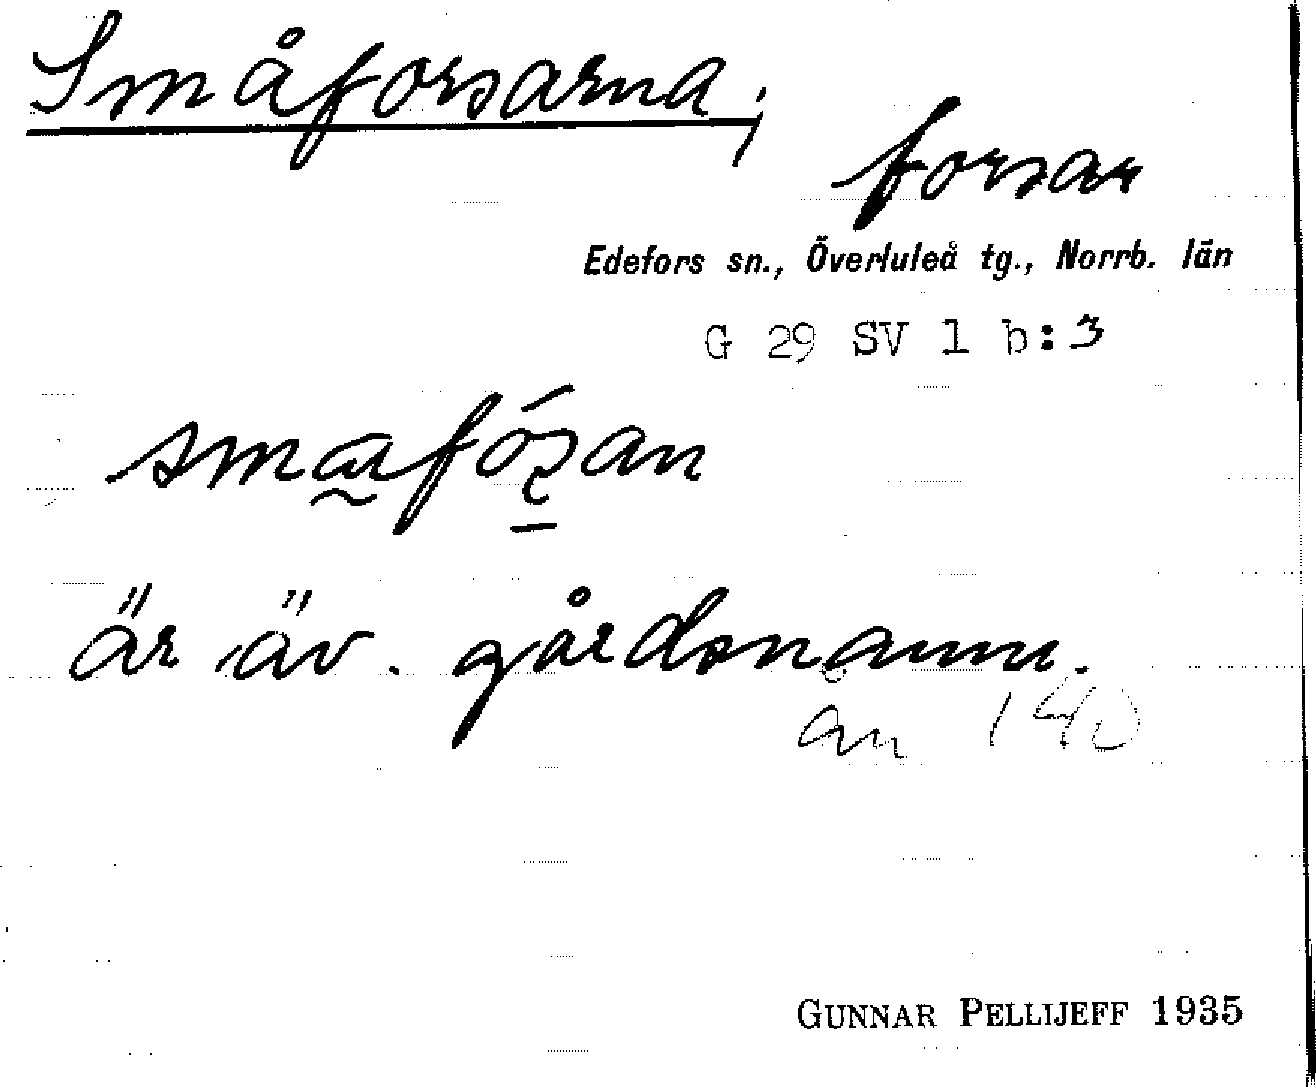 Småforsarna;
forsar
Edefors sn., Överluleå tg., Norrb. län
G 29 SV 1 b:3
är äv. gårdsnamn.
än 140
GUNNAR PELLIJEFF 1935